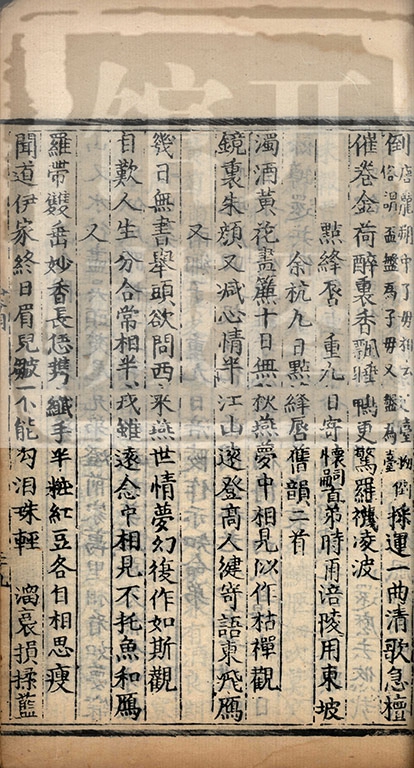 倒唐龍朔中了毋相去臺拗倒俗謂盃盤為子毋又盤為臺採運一曲清歌急檀
催卷金荷醉裏香飄睡鴨更驚羅襪凌波
點絳唇 重九日寄懷嗣直弟時用涪陵用東坡
余杭九日點絳唇舊韻二首
濁酒黃花畫簾十日無秋燕夢中相見似作枯禪觀
鏡裏朱顏又減心情半江山遠登高人健寄語東飛鴈
又
幾日無書舉頭欲問西來燕世情夢幻復作如斯觀
自歎人生分合常相半戎雖遠念中相見不托魚和鴈
又
羅帶雙垂妙香長恁攜纖手半粧紅豆各自相思瘦
聞道伊家終日眉兒皺不能勾淚珠輕溜裛損揉藍